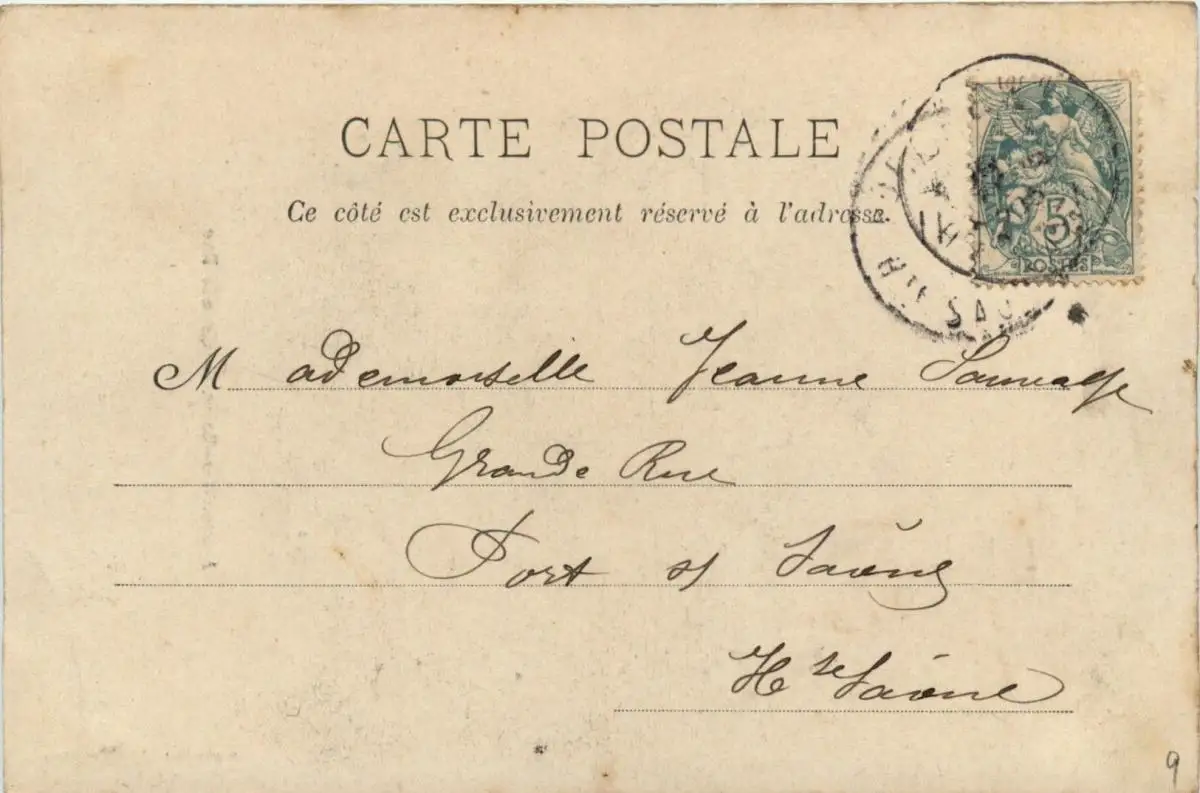 CARTE POSTALE
Ce côté est exclusivement réservé à l'adresse.
5
POSTES
Hte SAO
Mademoiselle Jeanne
Grande Rue
Port s/ Saône
Hte Saône
9